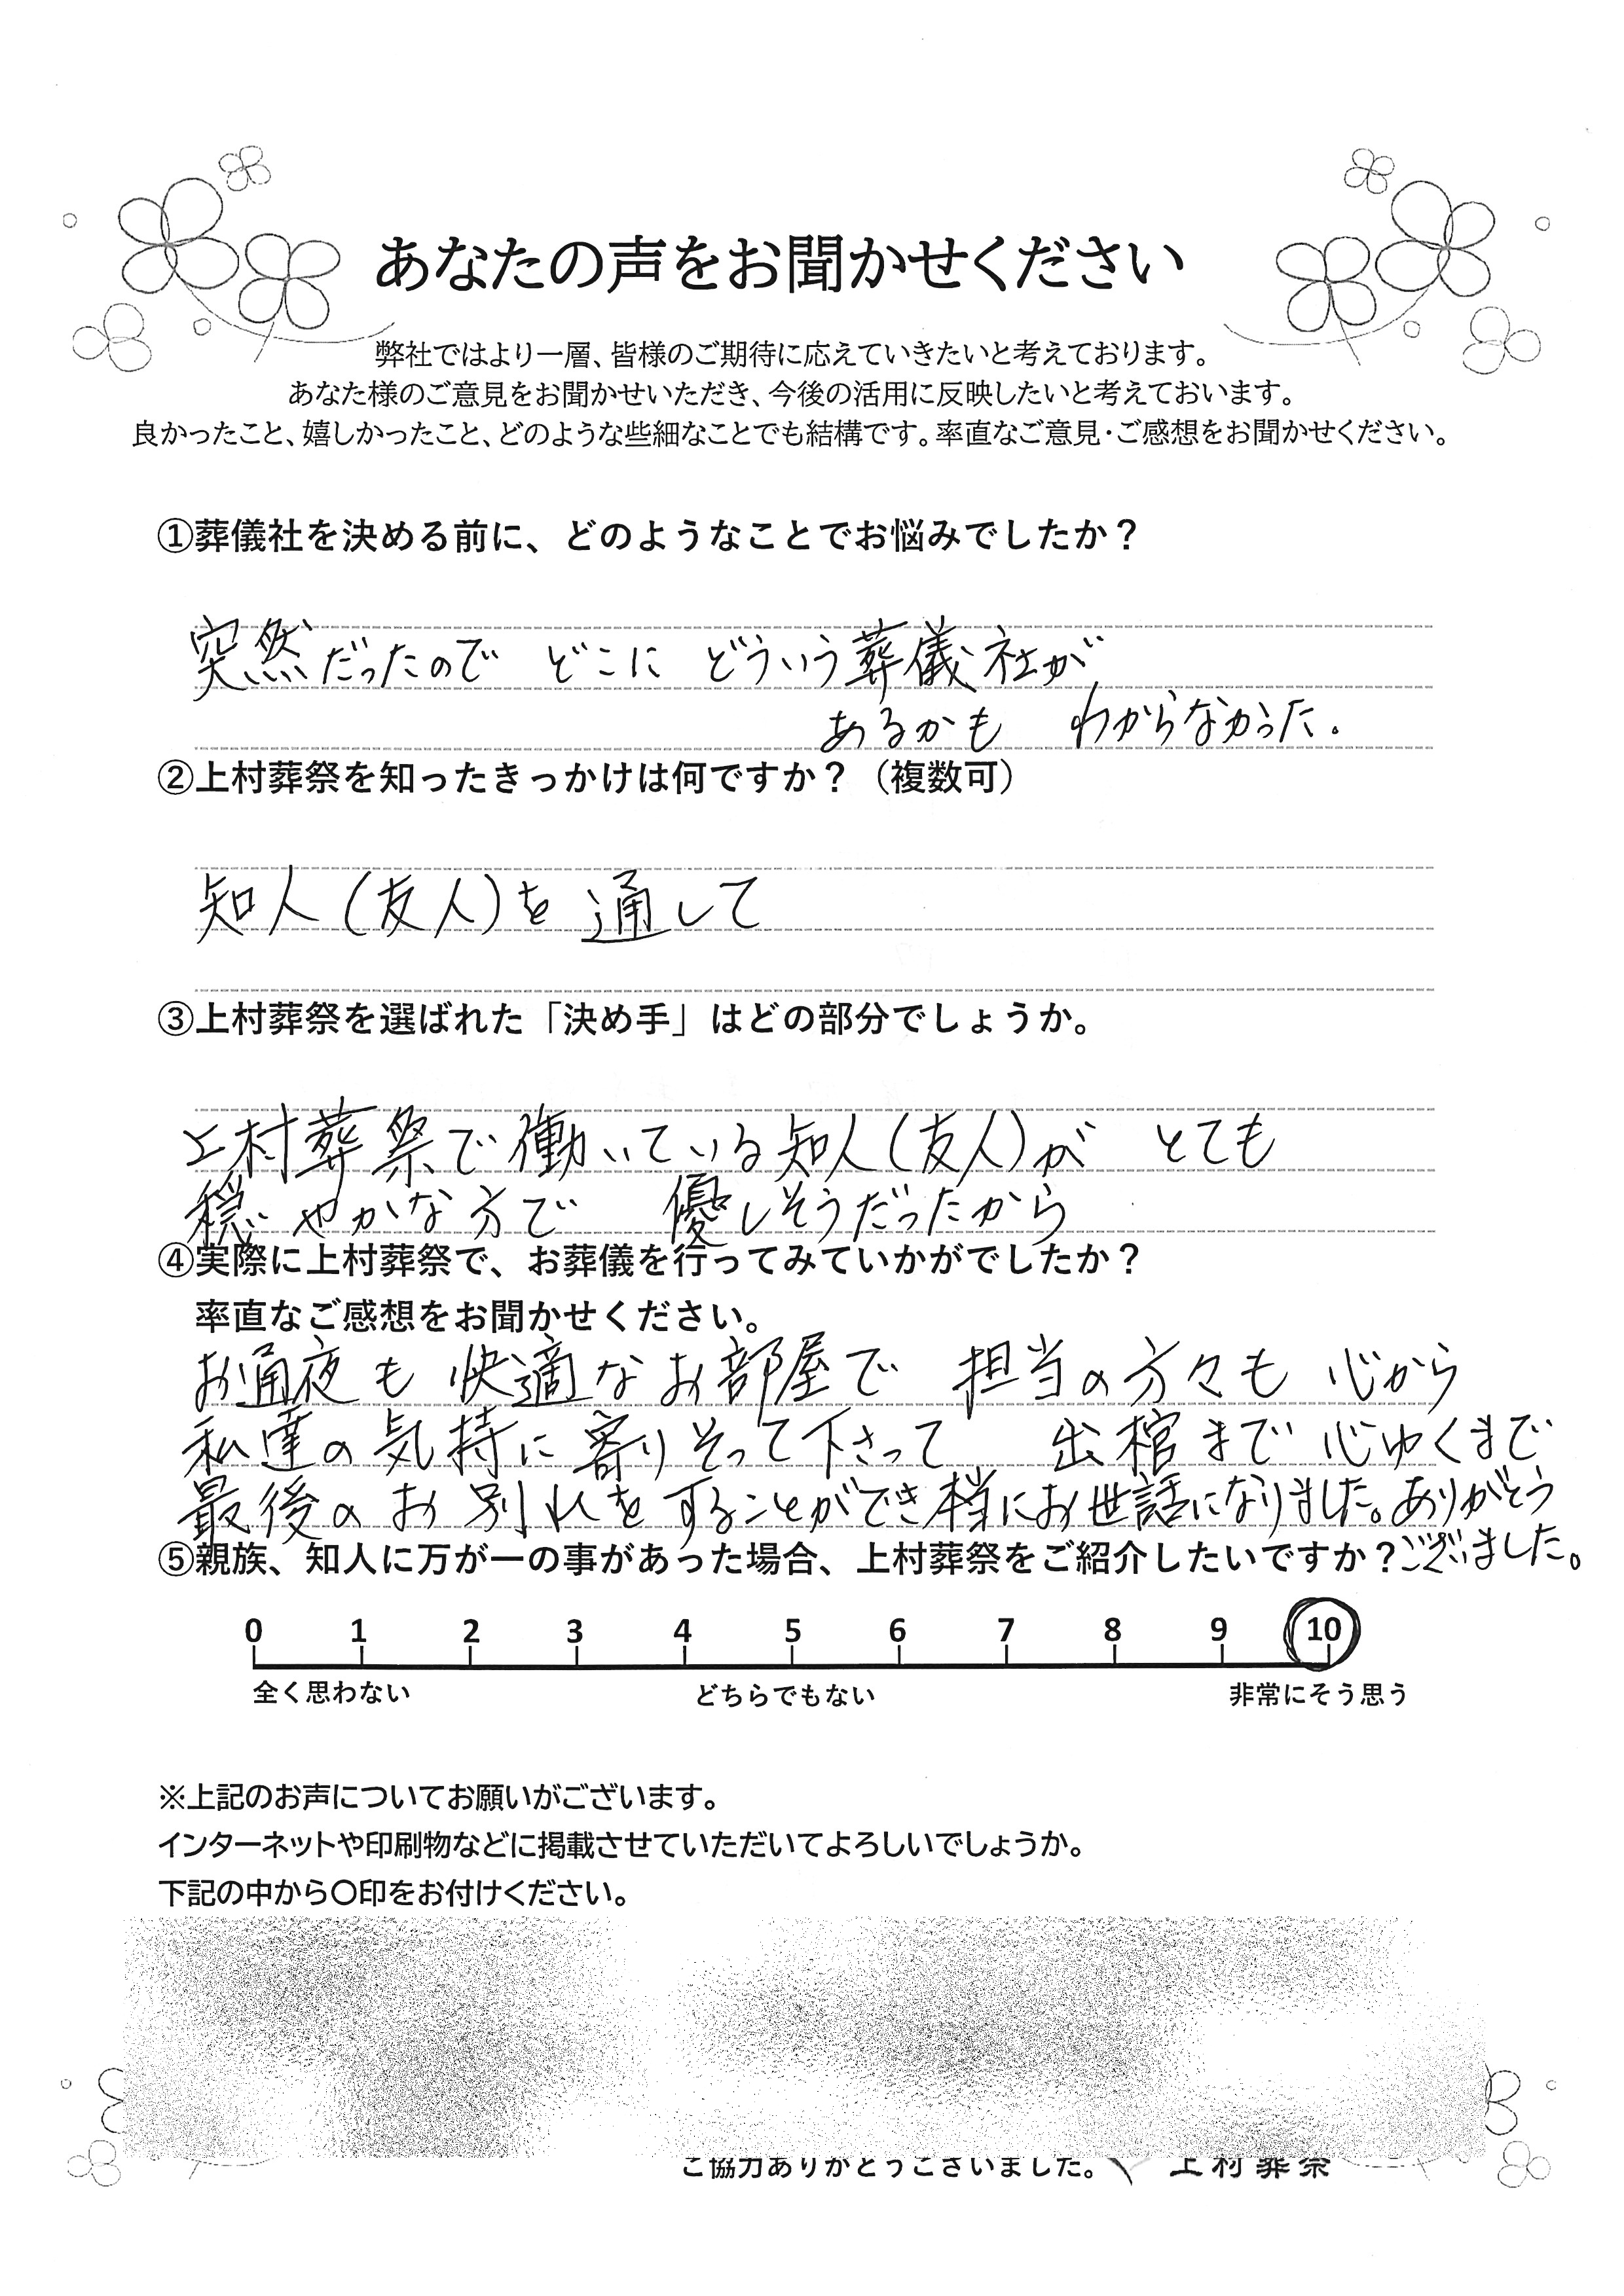 あなたの声をお聞かせください
弊社ではより一層、皆様のご期待に応えていきたいと考えております。
あなた様のご意見をお聞かせいただき、今後の活用に反映したいと考えておいます。
良かったこと、嬉しかったこと、どのような些細なことでも結構です。率直なご意見・ご感想をお聞かせください。
①葬儀社を決める前に、どのようなことでお悩みでしたか？
突然だったので どこに どういう葬儀社が
あるかも わからなかった.
②上村葬祭を知ったきっかけは何ですか？（複数可）
知人(友人)を通して
③上村葬祭を選ばれた「決め手」はどの部分でしょうか。
上村葬祭で働いている知人(友人)が とても
穏やかな方で 優しそうだったから
④実際に上村葬祭で、お葬儀を行ってみていかがでしたか？
率直なご感想をお聞かせください。
お通夜も快適なお部屋で 担当の方々も 心から
私達の気持に寄りそって下さって 出棺まで心ゆくまで
最後のお別れをすることができ本当にお世話になりました。ありがとう
ございました。
⑤親族、知人に万が一の事があった場合、上村葬祭をご紹介したいですか？
0 1 2 3 4 5 6 7 8 9 10
全く思わない どちらでもない 非常にそう思う
※上記のお声についてお願いがございます。
インターネットや印刷物などに掲載させていただいてよろしいでしょうか。
下記の中から〇印をお付けください。
ご協力ありがとうございました。 上村葬祭